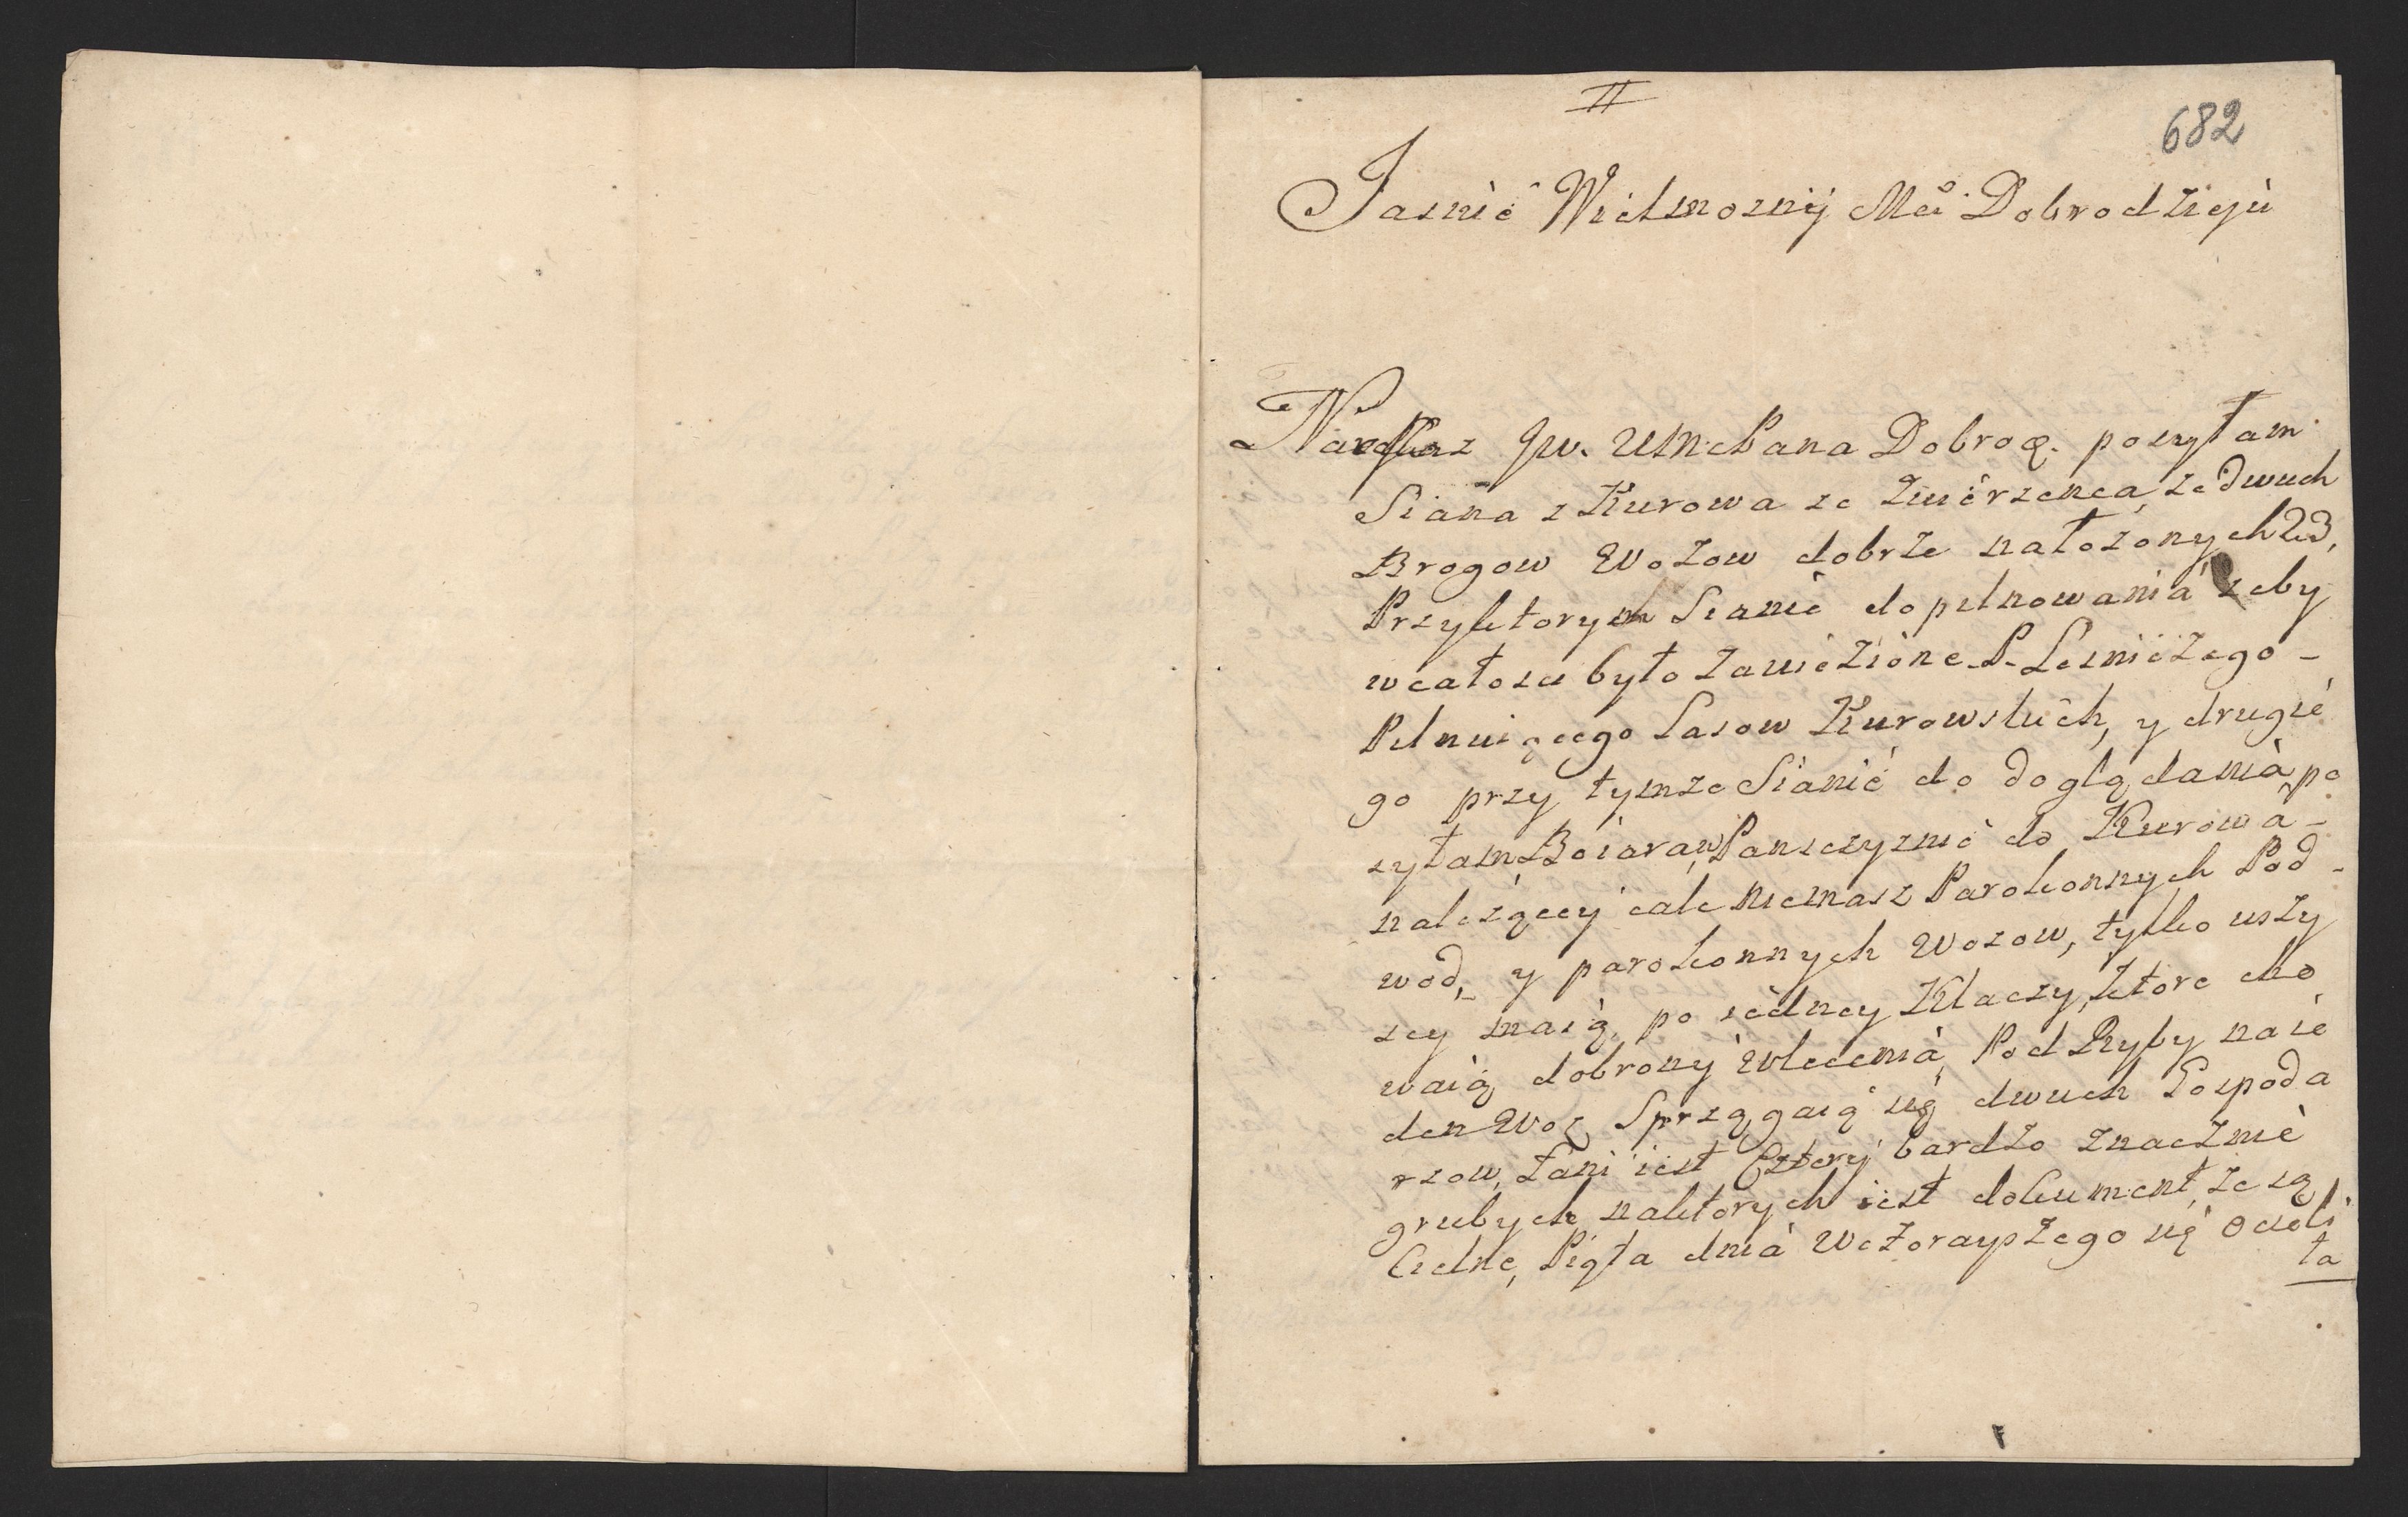 II
682
Jasnie Wielmozny Mci Dobrodzieju
Na rozkaz Jw. WMcPana Dobroę. posyłam
Siana z Kurowa ze Zwierzenca, ze dwuch
Brogow Wozow dobrze nałozonych 23,
Przyktorym Sianie do pilnowania zeby
wcałosci było zawiezione P. Lesniczego -
Pilnuiącego Lasow Kurowskich, y drugie
go przy tymze Sianie do doglądania po
syłam Boiara, w Panszczyznie do Kurowa -
nalezący cale niemasz Parokonnych Pod -
wod, y parokonnych wozow, tylko wszy
scy maią po iedney Klaczy, ktore cho
waią dobrony wleczenia, Pod Ryby na ie
den Woz Sprzągaią się dwuch Gospoda
rzow, Łani iest Cztery bardzo znacznie
grubych, naktorych iest dokument, ze są
Cielne, Piąta dnia Wczorayszego się Ocieli
ła